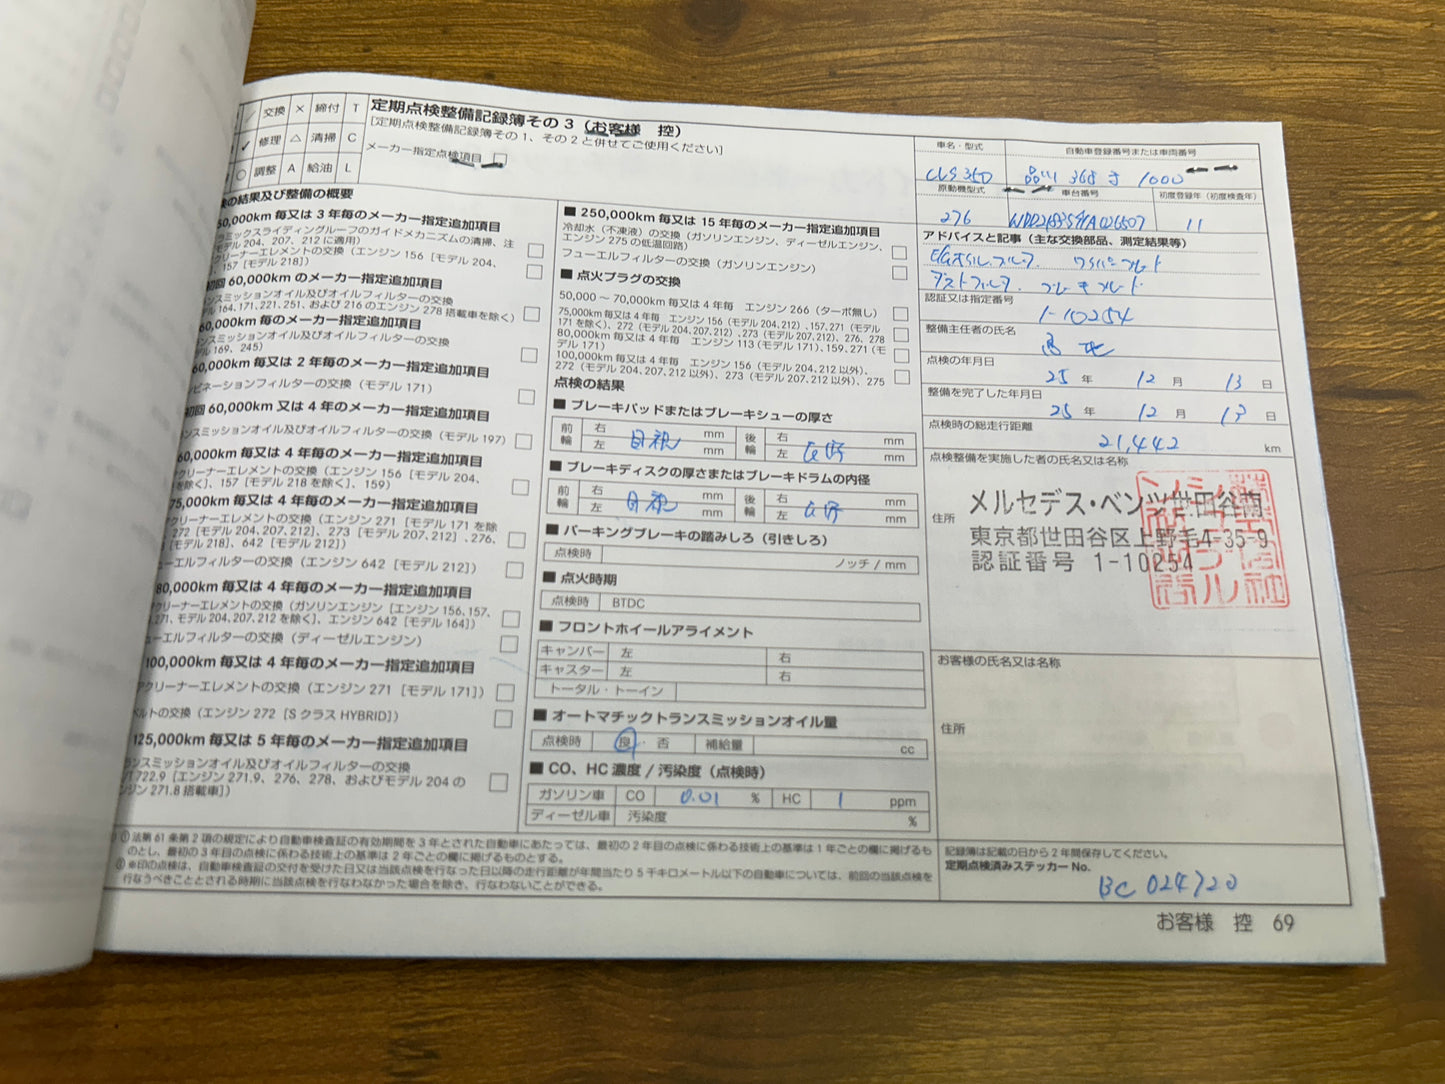 交換 × 締付 T
修理 △ 清掃 C
調整 A 給油 L
定期点検整備記録簿その3（お客様 控）
[定期点検整備記録簿その1、その2と併せてご使用ください]
メーカー指定点検項目
の結果及び整備の概要
50,000km 毎又は 3 年毎のメーカー指定追加項目
ミックスライディングルーフのガイドメカニズムの清掃、注
モデル 204、207、212 に適用）
クリーナーエレメントの交換（エンジン 156［モデル 204、
157［モデル 218］）
初回 60,000km のメーカー指定追加項目
ンスミッションオイル及びオイルフィルターの交換
デル 164、171、221、251、および 216 のエンジン 278 搭載車を除く）
60,000km 毎のメーカー指定追加項目
ンスミッションオイル及びオイルフィルターの交換
デル 169、245）
60,000km 毎又は 2 年毎のメーカー指定追加項目
ビネーションフィルターの交換（モデル 171）
初回 60,000km 又は 4 年毎のメーカー指定追加項目
ンスミッションオイル及びオイルフィルターの交換（モデル 197）
60,000km 毎又は 4 年毎のメーカー指定追加項目
クリーナーエレメントの交換（エンジン 156［モデル 204、
を除く］、157［モデル 218 を除く］、159）
75,000km 毎又は 4 年毎のメーカー指定追加項目
クリーナーエレメントの交換（エンジン 271［モデル 171 を除
272［モデル 204、207、212］、273［モデル 207、212］、276、
［モデル 218］、642［モデル 212］）
ューエルフィルターの交換（エンジン 642［モデル 212］）
80,000km 毎又は 4 年毎のメーカー指定追加項目
クリーナーエレメントの交換（ガソリンエンジン［エンジン 156、157、
271、モデル 204、207、212 を除く］、エンジン 642［モデル 164］）
ューエルフィルターの交換（ディーゼルエンジン）
100,000km 毎又は 4 年毎のメーカー指定追加項目
アクリーナーエレメントの交換（エンジン 271［モデル 171］）
ベルトの交換（エンジン 272［S クラス HYBRID］）
125,000km 毎又は 5 年毎のメーカー指定追加項目
ランスミッションオイル及びオイルフィルターの交換
722.9［エンジン 271.9、276、278、およびモデル 204 の
ンジン 271.8 搭載車］）
■ 250,000km 毎又は 15 年毎のメーカー指定追加項目
冷却水（不凍液）の交換（ガソリンエンジン、ディーゼルエンジン、
エンジン 275 の低温回路）
フューエルフィルターの交換（ガソリンエンジン）
■ 点火プラグの交換
50,000 ～ 70,000km 毎又は 4 年毎 エンジン 266（ターボ無し）
75,000km 毎又は 4 年毎 エンジン 156（モデル 204、212）、157、271（モデル
171 を除く）、272（モデル 204、207、212）、273（モデル 207、212）、276、278
80,000km 毎又は 4 年毎 エンジン 113（モデル 171）、159、271（モ
デル 171）
100,000km 毎又は 4 年毎 エンジン 156（モデル 204、212 以外）、
272（モデル 204、207、212 以外）、273（モデル 207、212 以外）、275
点検の結果
■ ブレーキパッドまたはブレーキシューの厚さ
前輪 右 左 目視 mm mm 後輪 右 左 良好 mm mm
■ ブレーキディスクの厚さまたはブレーキドラムの内径
前輪 右 左 目視 mm mm 後輪 右 左 良好 mm mm
■ パーキングブレーキの踏みしろ（引きしろ）
点検時 ノッチ / mm
■ 点火時期
点検時 BTDC
■ フロントホイールアライメント
キャンバー 左 右
キャスター 左 右
トータル・トーイン
■ オートマチックトランスミッションオイル量
点検時 良 ・ 否 補給量 cc
■ CO、HC 濃度 / 汚染度（点検時）
ガソリン車 CO 0.01 % HC 1 ppm
ディーゼル車 汚染度 %
車名・型式 自動車登録番号または車両番号
CLS350 品川 368 す 1000
原動機型式 車台番号 初度登録年（初度検査年）
276 11
アドバイスと記事（主な交換部品、測定結果等）
E/Gオイル、フィルタ、ワイパーブレード
ダストフィルタ、ブレーキフルード
認証又は指定番号
1-10254
整備主任者の氏名
点検の年月日
25 年 12 月 13 日
整備を完了した年月日
25 年 12 月 13 日
点検時の総走行距離
21,442 km
点検整備を実施した者の氏名又は名称
住所
メルセデス・ベンツ世田谷南
東京都世田谷区上野毛4-35-9
認証番号 1-10254
お客様の氏名又は名称
住所
① 法第 61 条第 2 項の規定により自動車検査証の有効期間を 3 年とされた自動車にあたっては、最初の 2 年目の点検に係わる技術上の基準は 1 年ごとの欄に掲げるも
のとし、最初の 3 年目の点検に係わる技術上の基準は 2 年ごとの欄に掲げるものとする。
② ※印の点検は、自動車検査証の交付を受けた日又は当該点検を行なった日以降の走行距離が年間当たり 5 千キロメートル以下の自動車については、前回の当該点検を
行なうべきこととされる時期に当該点検を行なわなかった場合を除き、行なわないことができる。
記録簿は記載の日から 2 年間保存してください。
定期点検済みステッカー No.
BC 024720
お客様 控 69